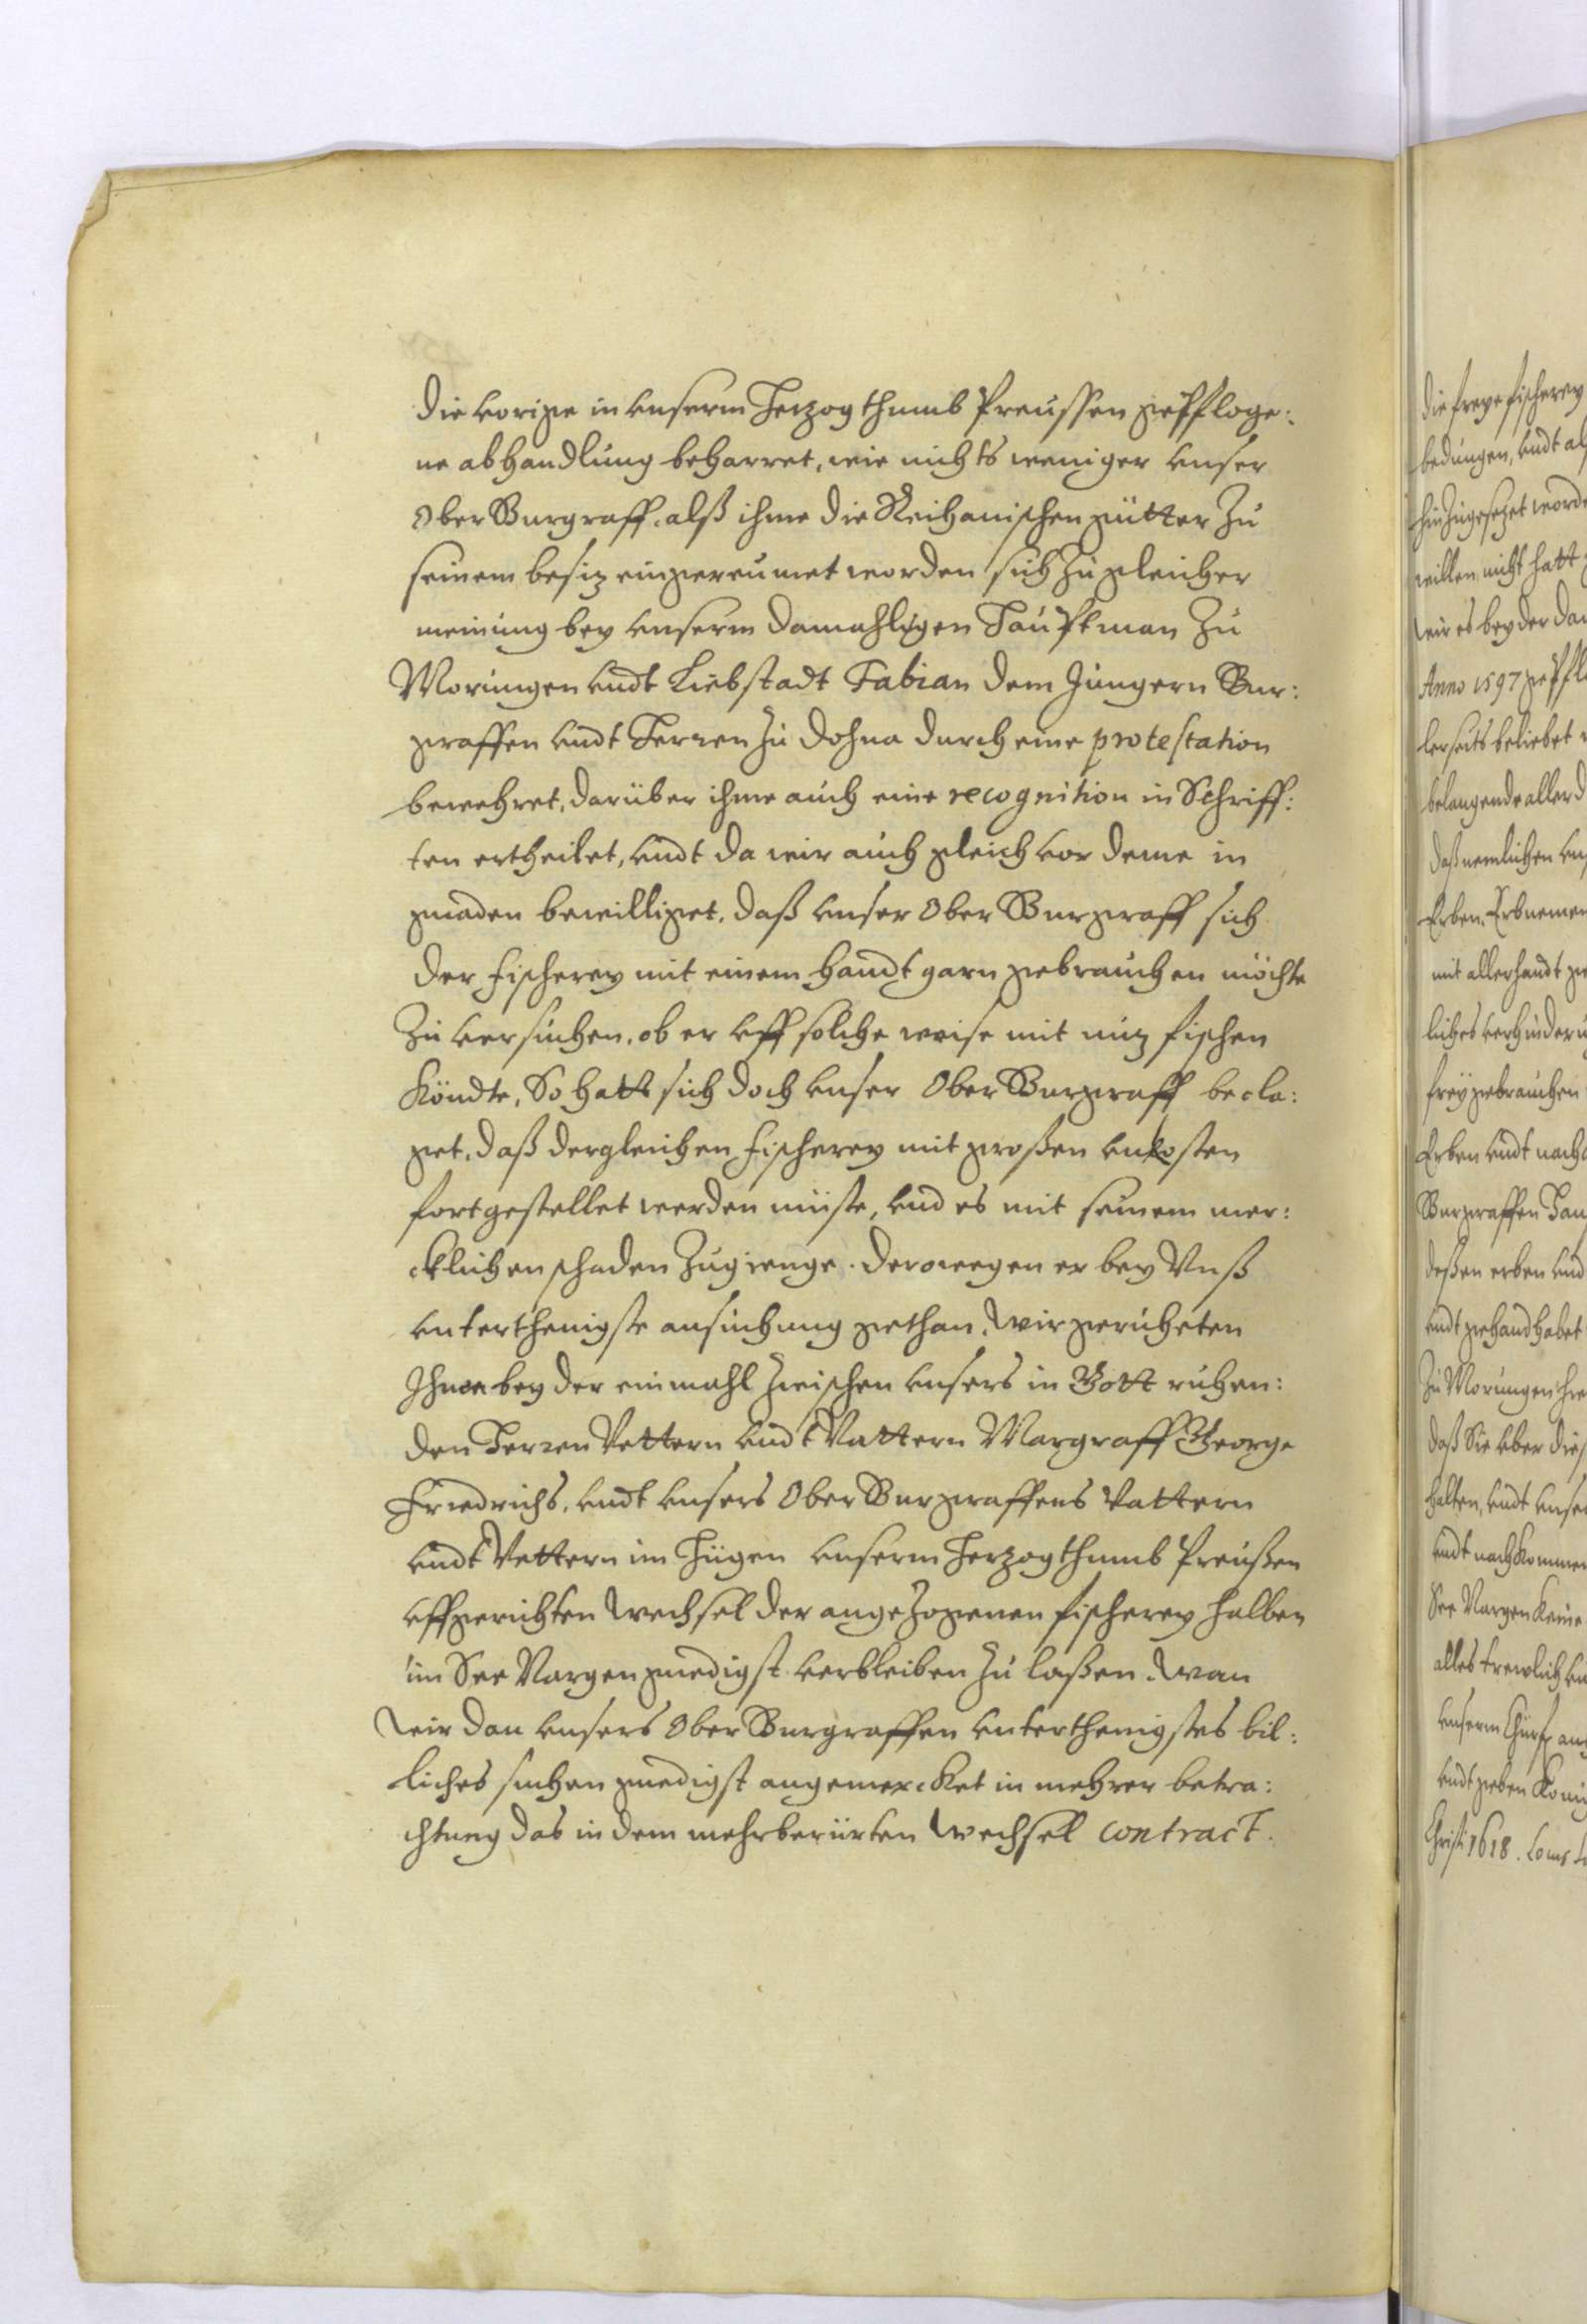 die vorige in vnserm Herzogthumb Preussen gepfloge:
ne abhandlung beharret, wie nichts weniger vnser
Ober Burgraff, alß ihme die Reihanischen gütter zu
seinem besiz eingereumet worden sich zu gleicher
meinung bey vnserm damahligen Hauptman zu
Morungen vndt Liebstadt Fabian dem Jungern Bur:
graffen vndt Herren zu Dohna durch eine protestation
bewehret, darüber ihme auch eine recognition in Schriff:
ten ertheilet, vndt da wir auch gleich vor deme in
gnaden bewilliget, daß vnser Ober Burggraff sich
der fischerey mit einem handt garn gebrauchen möchte
Zu versuchen, ob er vff solche weise mit nuz fischen
Köndte, So hatt sich doch vnser Ober Burggraff becla:
get, daß dergleichen fischerey mit großen vnkosten
fortgestellet werden müste, vnd es mit seinem mer:
cklichen schaden Zugienge. Derowegen er bey Vnß
vnterthenigste ansuchung gethan, Wir geruheten
Ihnen bey der einmahl zwischen vnsers in Gott ruhen:
den Herren Vettern vndt Vattern Margraff George
Friedrichs, vndt vnsers Ober Burggraffens Vattern
vndt Vettern im Hügen vnserm Herzogthumb Preußen
vffgerichten Wechsel der angezogenen fischerey halben
im See Nargen gnedigst verbleiben zu laßen. Wan
Wir dan vnsers Ober Burgraffen vnterthenigstes bil:
liches suchen gnedigst angemercket in mehrer betra:
chtung das in dem mehrberürten Wechsel contract.
die freye fischerey
bedungen, vndt al
hinzugesezet word
willen nicht hatt
Wir es bey der da
Anno 1597 gepfl
lerseits beliebet
belangende aller d
daß nemlichen vn
Erben, Erbnemen
mit allerhandt ge
liches verhinder
frey gebrauchen
Erben vndt nach
Burggraffen Han
deßen erben vnd
vndt gehandhabet
zu Morungen hie
daß Sie vber dies
halten, vndt vnse
vndt nachkommen
See Nargen Keine
alles trewlich vn
vnserm Churf. an
vndt geben Köni
Christi 1618.